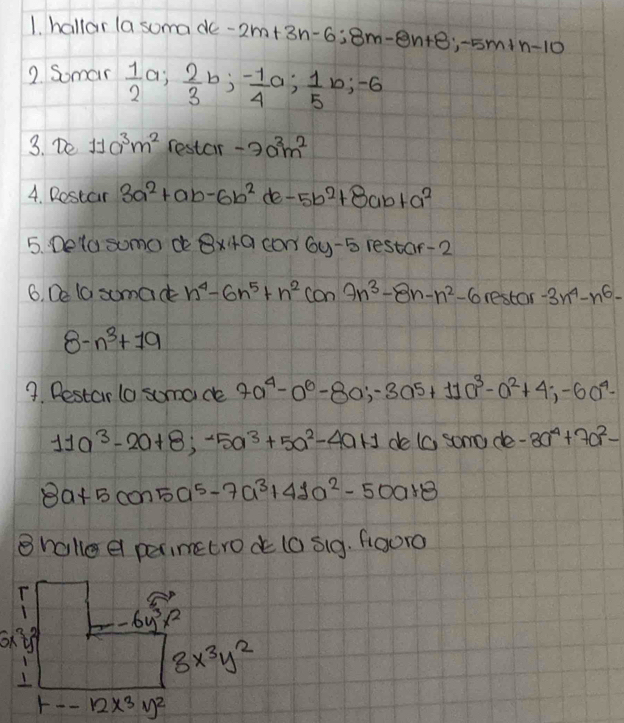 1. hallar la suma de -2m+3n-6; 8m-8n+8; -5m+n-10
2. Somar 1/2 a; 2/3 b; -1/4 a; 1/5 b; -6
3. De 11a³m² restar -7a³m²
4. Restar 3a²+ab-6b² de -5b²+8ab+a²
5. De la suma de 8x+9 con 6y-5 restar -2
6. De la suma de n⁴-6n⁵+n² con 7n³-8n-n²-6 restar -3n⁴-n⁶-
8-n³+19
7. Restar la soma de 7a⁴-a⁶-8a; -3a⁵+11a³-a²+4; -6a⁴-
11a³-2a+8; -5a³+5a²-4a+1 de la soma de -3a⁴+7a²-
8a+5 con 5a⁵-7a³+41a²-50a+8
8 halle el perimetro de la sig. figora
-6y³x²
6x³y²
8x³y²
12x³y²